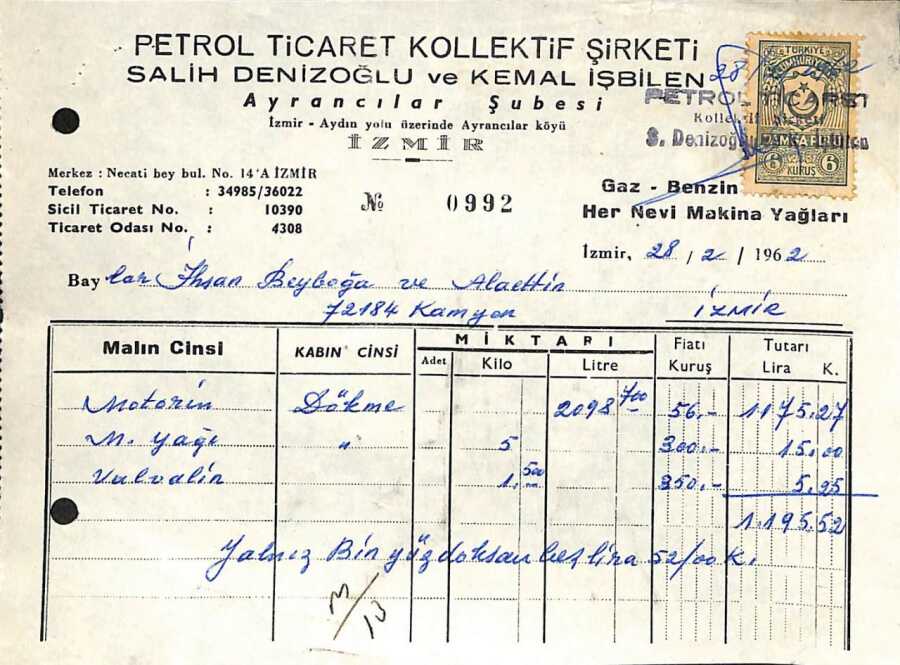 PETROL TİCARET KOLLEKTİF ŞİRKETİ
SALİH DENİZOĞLU ve KEMAL İŞBİLEN
Ayrancılar Şubesi
İzmir - Aydın yolu üzerinde Ayrancılar köyü
İZMİR
28
TÜRKİYE
CUMHURİYETİ
PETROL TİCARET
Kollektif Şirketi
S. Denizoğlu
DAMGA PULU
6 KURUŞ 6
Merkez : Necati bey bul. No. 14/A İZMİR
Telefon : 34985/36022
Sicil Ticaret No. : 10390
Ticaret Odası No. : 4308
№ 0992
Gaz - Benzin
Her Nevi Makina Yağları
İzmir, 28 / 2 / 1962
Bay lar İhsan Beyboğa ve Alaettin
72184 Kamyon İZMİR
Malın Cinsi KABIN CİNSİ MİKTARI Fiatı Tutarı
Adet Kilo Litre Kuruş Lira K.
Motorin Dökme 2098 700 56.- 1175.27
M. yağı " 5 300.- 15.00
Valvalin 1.500 350.- 5.25
1.195.52
Yalnız Bin yüz doksan beş lira 52/00 K.
M/10